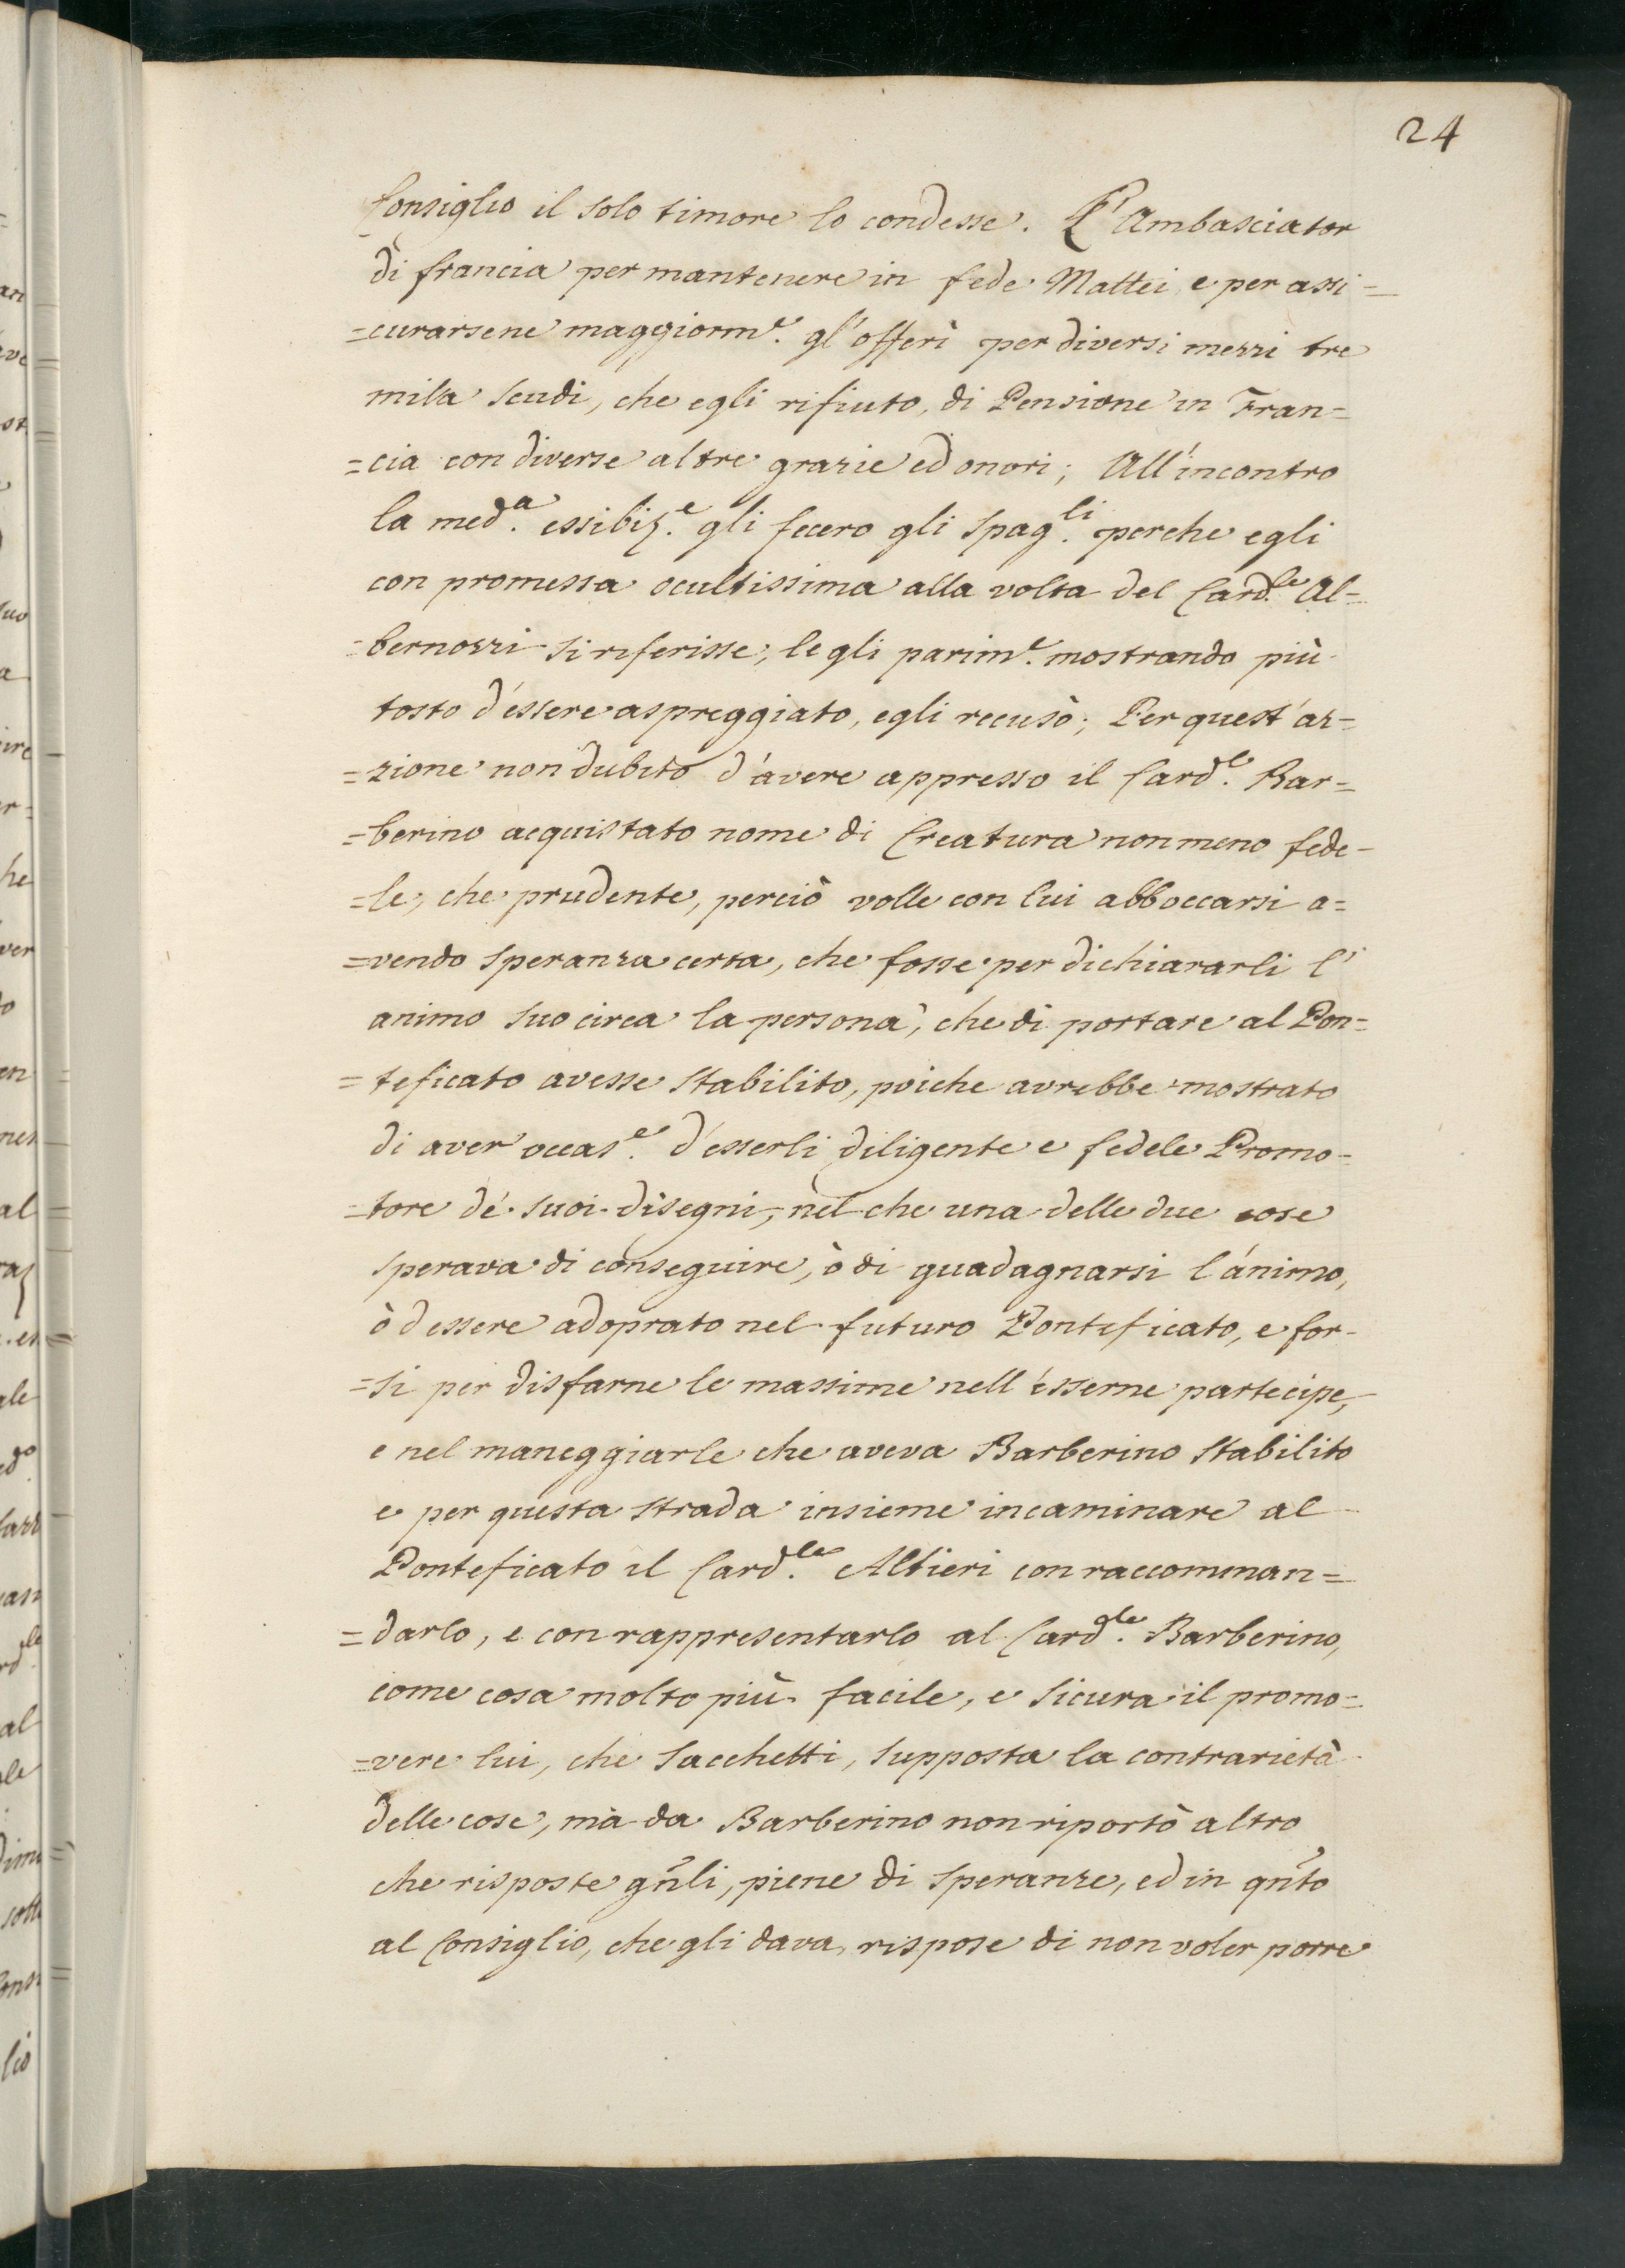 24
Consiglio il solo timore lo condesse. L'Ambasciator
di francia per mantenere in fede Mattei e per assi=
=curarsene maggiorm.e gl'offerì per diversi mezzi tre
mila scudi, che egli rifiuto, di Pensione in Fran=
=cia con diverse altre grazie ed onori; All'incontro
la med.a essibiz.e gli fecero gli spag.li perche egli
con promessa ocultissima alla volta del Card.le Al=
=bernozzi si riferisse, le gli parim.e mostrando più
tosto d'essere aspreggiato, egli recusò; Per quest'az=
=zione non dubitò d'avere appresso il Card.le Bar=
=berino acquistato nome di Creatura non meno fede=
=le, che prudente, perciò volle con lui abboccarsi a=
=vendo speranza certa, che fosse per dichiararli l'
animo suo circa la persona, che di portare al Pon=
=teficato avesse stabilito, poiche avrebbe mostrato
di aver occas.e d'esserli diligente e fedele Promo=
=tore de' suoi disegni, nel che una delle due cose
sperava di conseguire, ò di guadagnarsi l'animo,
ò d essere adoprato nel futuro Pontificato, e for=
=si per disfarne le massime nell'esserne partecipe,
e nel maneggiarle che aveva Barberino stabilito
e per questa strada insieme incaminare al
Ponteficato il Card.le Altieri con raccomman=
=darlo, e con rappresentarlo al Card.le Barberino,
come cosa molto più facile, e sicura il promo=
=vere lui, che Sacchetti, supposta la contrarietà
delle cose, mà da Barberino non riportò altro
che risposte gñli, piene di speranze, ed in qñto
al Consiglio, che gli dava, rispose di non voler porre